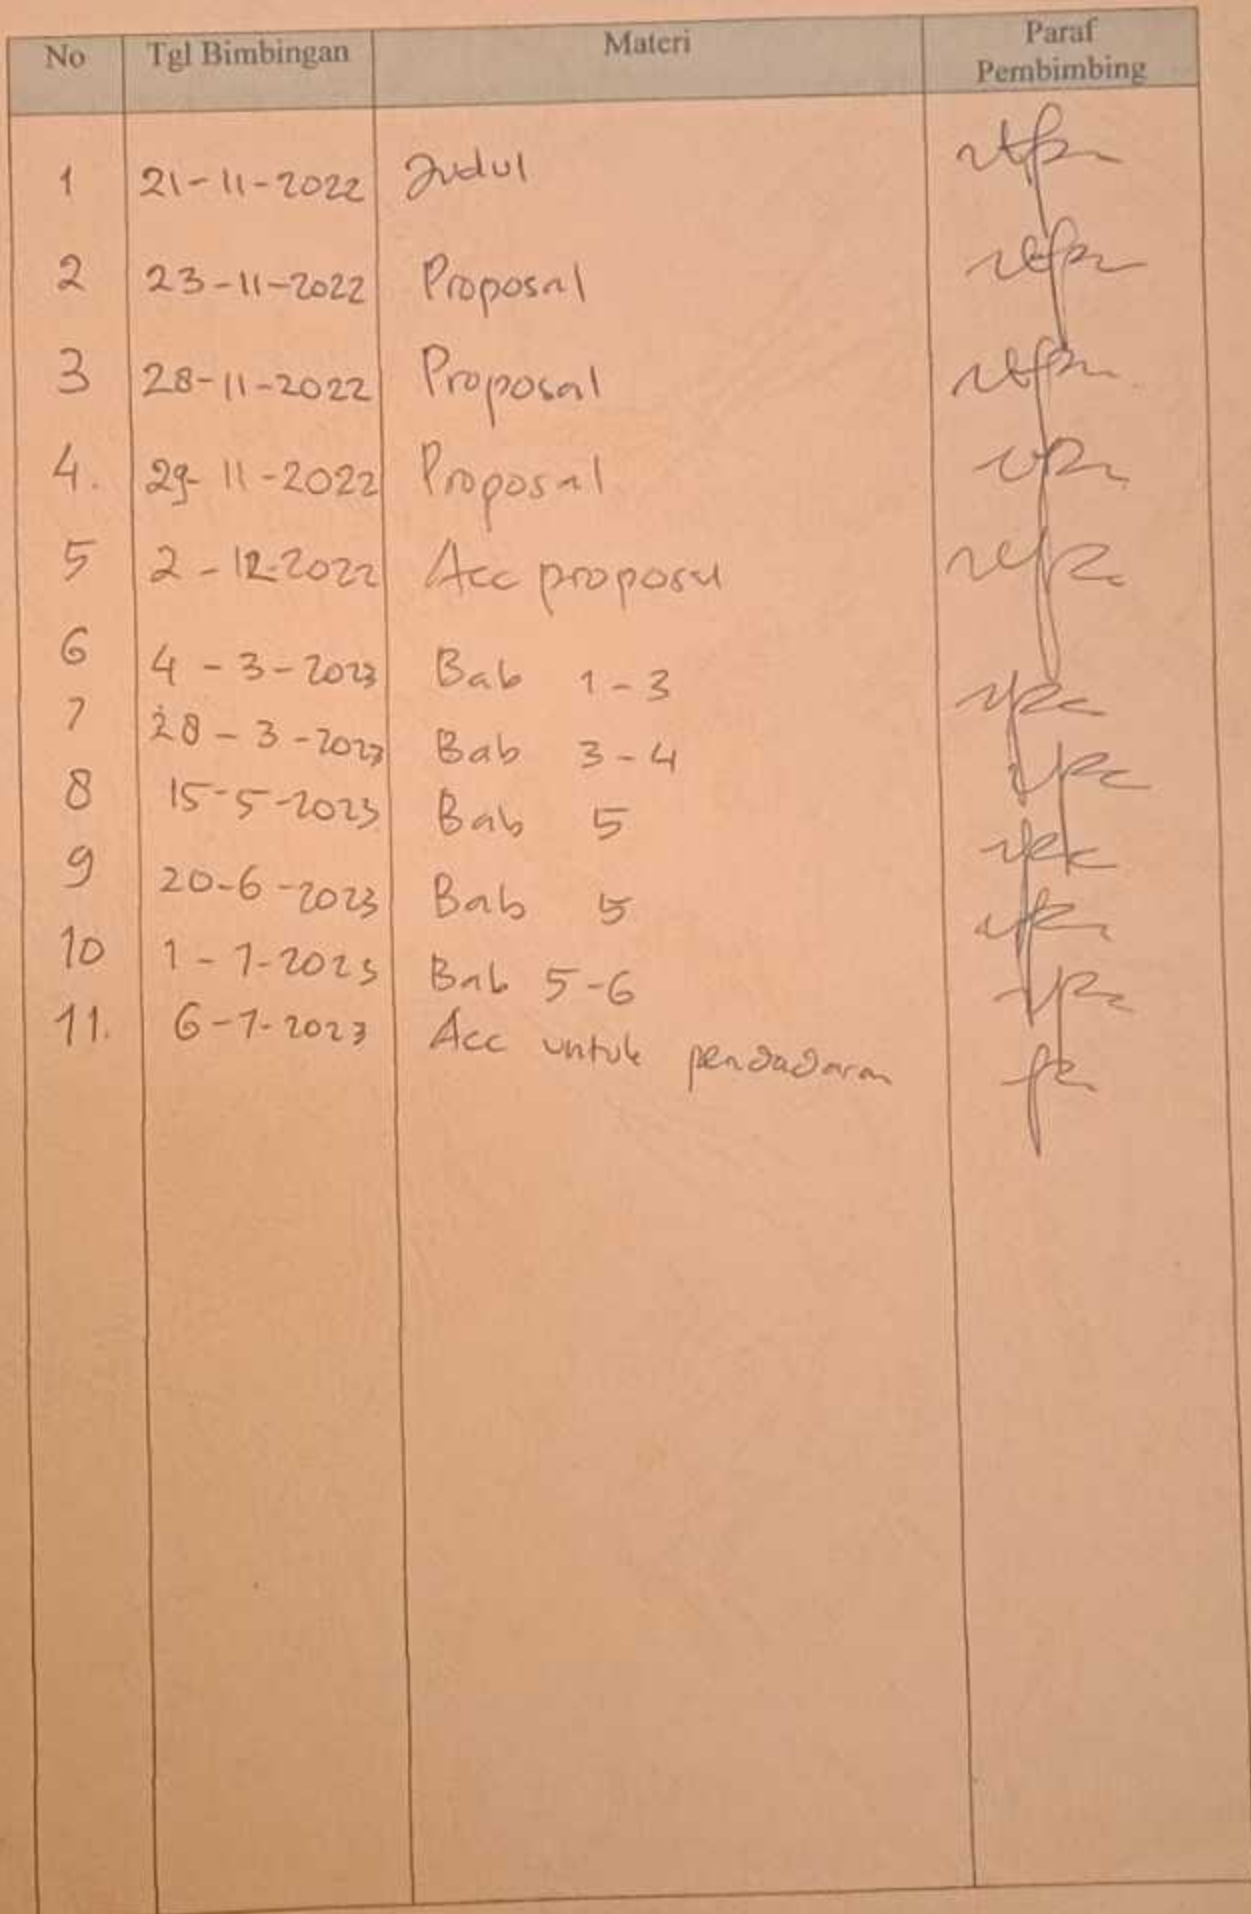 No Tgl Bimbingan Materi Paraf Pembimbing
1 21-11-2022 Judul
2 23-11-2022 Proposal
3 28-11-2022 Proposal
4. 29-11-2022 Proposal
5 2-12-2022 Acc proposal
6 4-3-2023 Bab 1-3
7 28-3-2023 Bab 3-4
8 15-5-2023 Bab 5
9 20-6-2023 Bab 5
10 1-7-2023 Bab 5-6
11. 6-7-2023 Acc untuk pendadaran